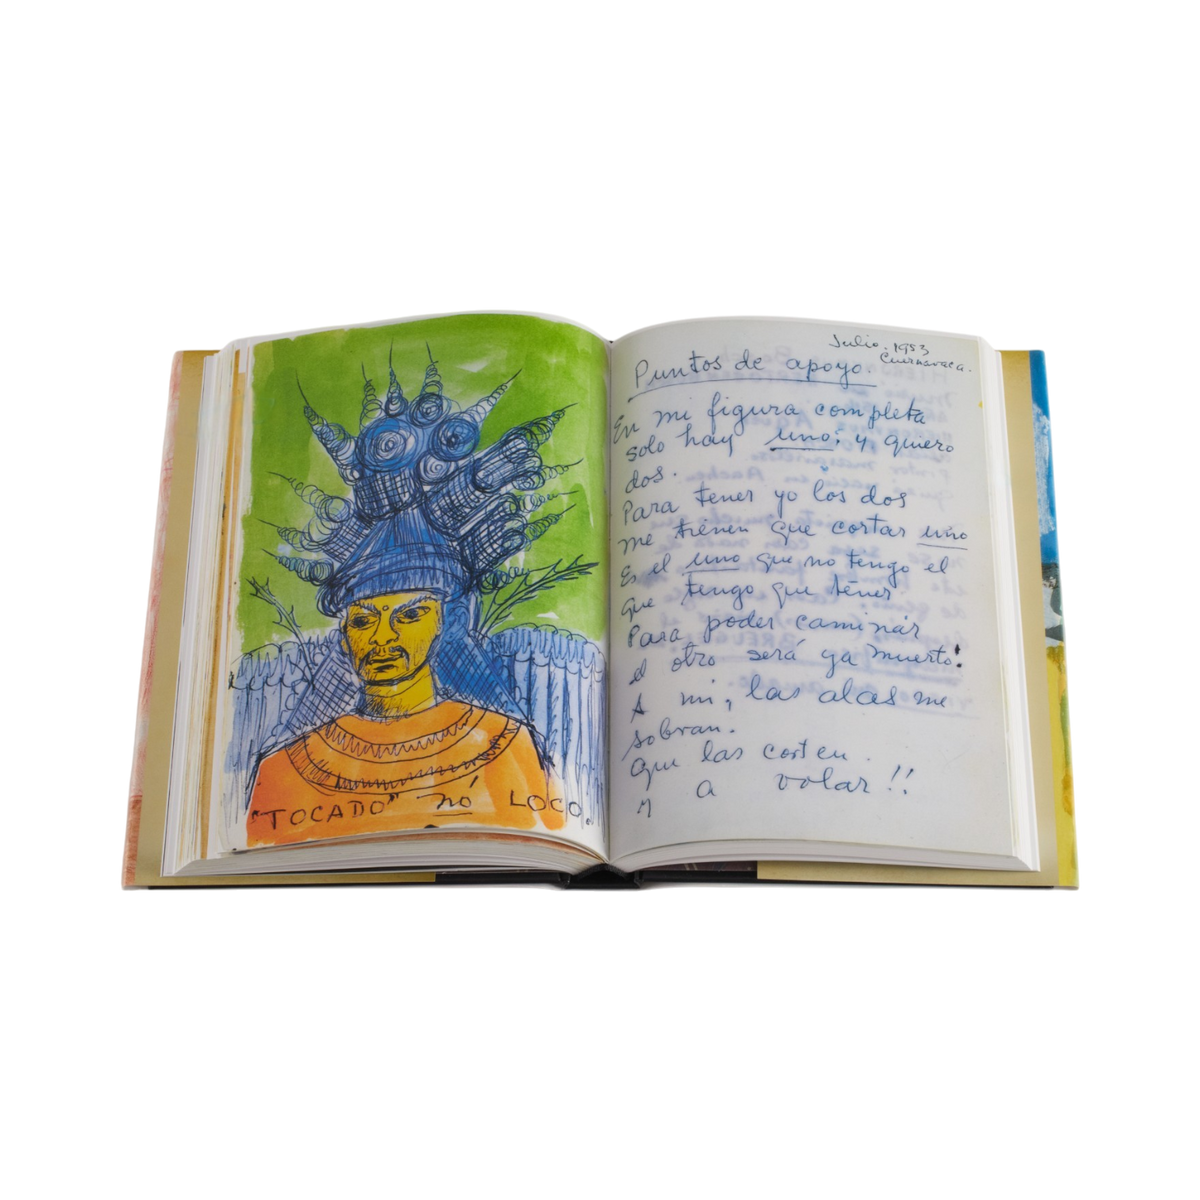 "TOCADO" nó LOCO.
Julio. 1953
Cuernavaca.
Puntos de apoyo.
En mi figura completa
solo hay uno; y quiero
dos.
Para tener yo los dos
me tienen que cortar uno
Es el uno que no tengo el
que tengo que tener
Para poder caminar
el otro será ya muerto!
A mi, las alas me
sobran.
Que las corten.
y a volar!!